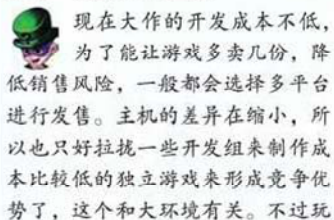 现在大作的开发成本不低，
为了能让游戏多卖几份，降
低销售风险，一般都会选择多平台
进行发售。主机的差异在缩小，所
以也只好拉拢一些开发组来制作成
本比较低的独立游戏来形成竞争优
势了，这个和大环境有关。不过玩